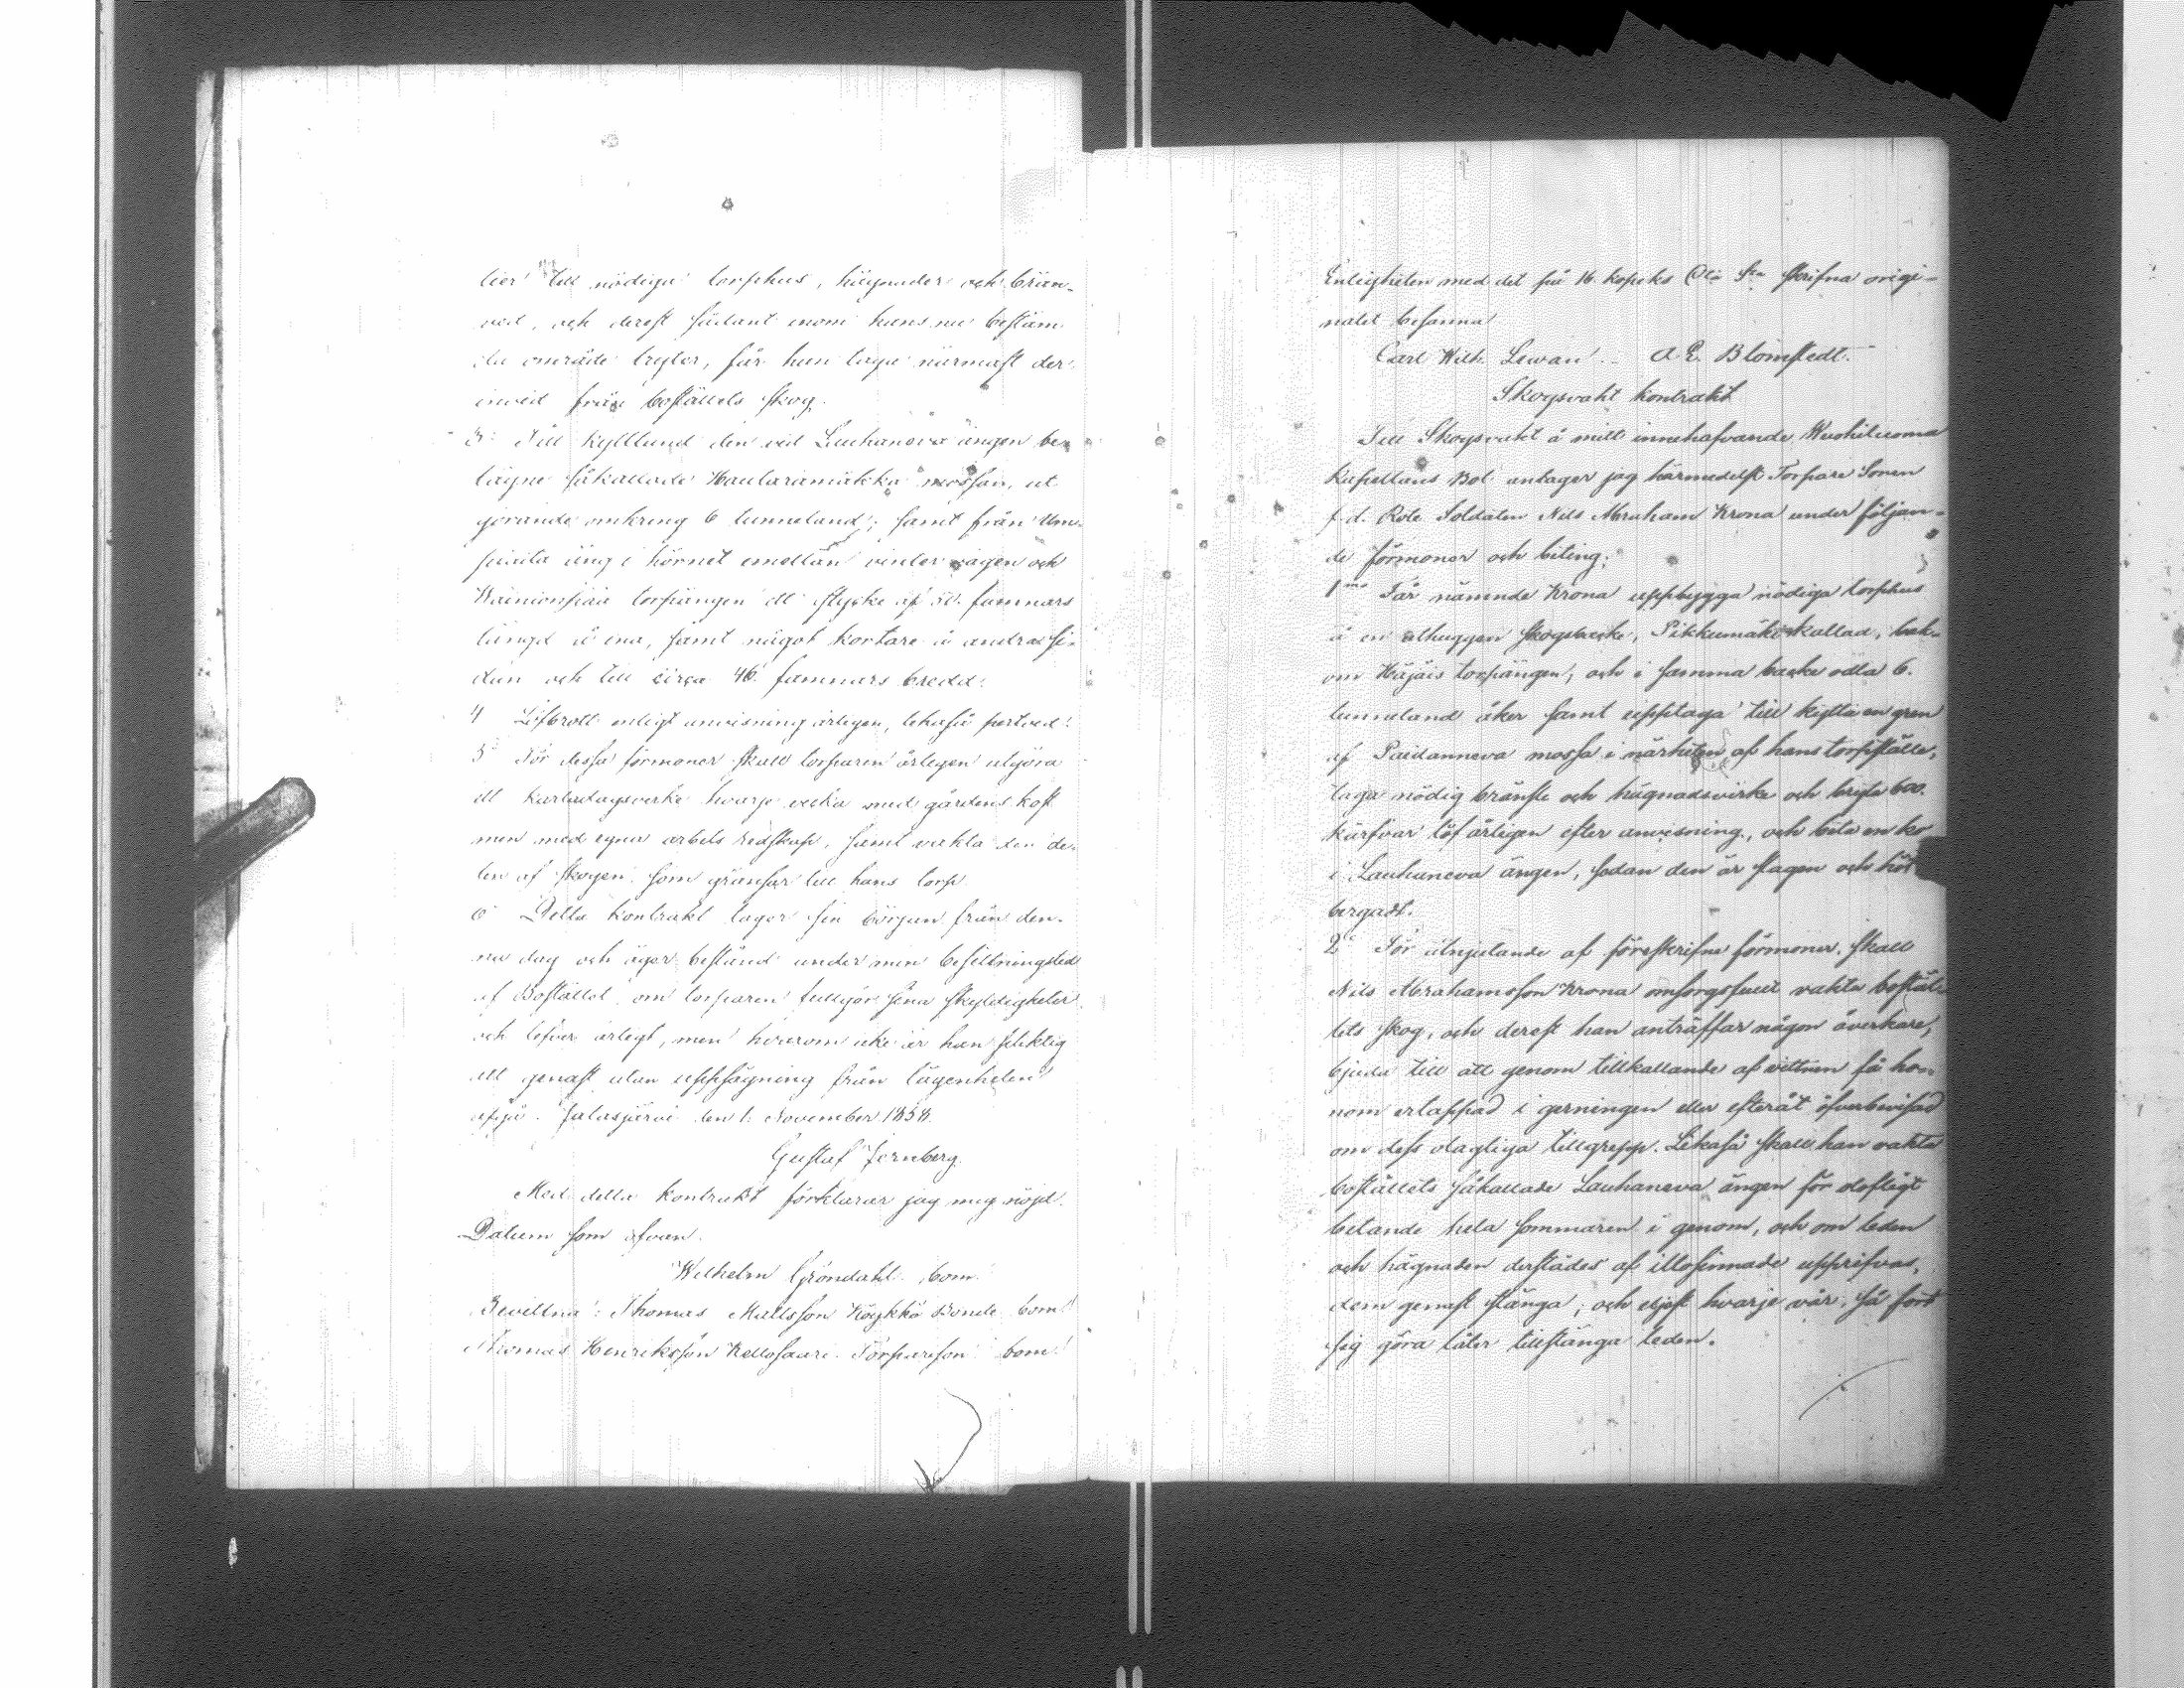 lier till nödiga torphus, hägnader och brän-
ved, och derest sådant inom hans nu bestäm
da område tryter, får han taga närmast der
invid från boställets skog.
3. Till kyttland den vid Lauhaneva ängen be-
lägne såkallade Haularamäkkä mossan, ut
görande omkring 6 tunneland; samt från
äng i hörnet emellan vinter vägen och
Wainionpää torpängen ett stycke af 50. famnars
längd å ena, samt något kortare å andra si-
dan och till circa 46. famnars bredd.
4 Löfbrott enligt anvisning årligen, likaså pertved.
5 För dessa förmoner skall torparen årligen utgöra
ett karladagsverke hvarje vecka med gårdens kost
men med egna arbets redskap, samt vakta den de-
len af skogen som gränsar till hans torp.
6 Detta kontrakt tager sin början från den-
na dag och äger bestånd under min besittningstid
af Bostället om torparen fullgör sina skyldigheter
och lefver ärligt, men hvarom icke är han pliktig
att genast utan uppsägning från lägenheten
afgå. Jalasjärvi den 1. November 1858.
Gustaf Jernberg.
Med detta kontrakt förklarar jag mig nöjd.
Datum som ofvan.
Wilhelm Gröndahl. bom.
Bevittna: Thomas Mattsson Köykkä Bonde bom.
Thomas Henriksson Kellosaari Torpareson bom.
Enligheten med det på 16. kopeks skrifna origi-
nalet besanna
Carl Wilh. Lewan. A. E. Blomstedt.
Skogsvakt kontrakt
Till Skogsvakt å mitt innehafvande
Kapellans Bol antager jag härmedelst Torpare Sonen
f. d. Rote Soldaten Nils Abraham Krona under följan-
de förmoner och beting:
1mo Får nämnde Krona uppbygga nödiga torphus
å en uthuggen skogsbacke, Pikkumäki kallad, bak-
om Häjäis torpängen, och i samma backe odla 6.
tunneland åker samt upptaga till kyttä en gren
af Paidanneva mossa i närheten af hans torpställe,
taga nödig bränsle och hägnadsvirke och bryta 600.
kärfvar löf årligen efter anvisning, och beta en ko
i Lauhaneva ängen, sedan den är slagen och höt
bergadt.
2o För åtnjutande af föreskrifna förmoner, skall
Nils Abrahamsson Krona omsorgsfullt vakta bostäl-
lets skog, och derest han anträffar någon åverkare,
bjuda till att genom tillkallande af vittnen få ho-
nom ertappad i gerningen eller efteråt öfverbevisad
om dess olagliga tillgrepp. Likaså skall han vakta
boställets såkallade Lauhaneva ängen för olofligt
betande hela sommaren i genom, och om leden
och hägnaden derstädes af illasinnade upprifvas,
dem genast stänga; och eljest hvarje vår, så fort
sig göra låter tillstänga leden.